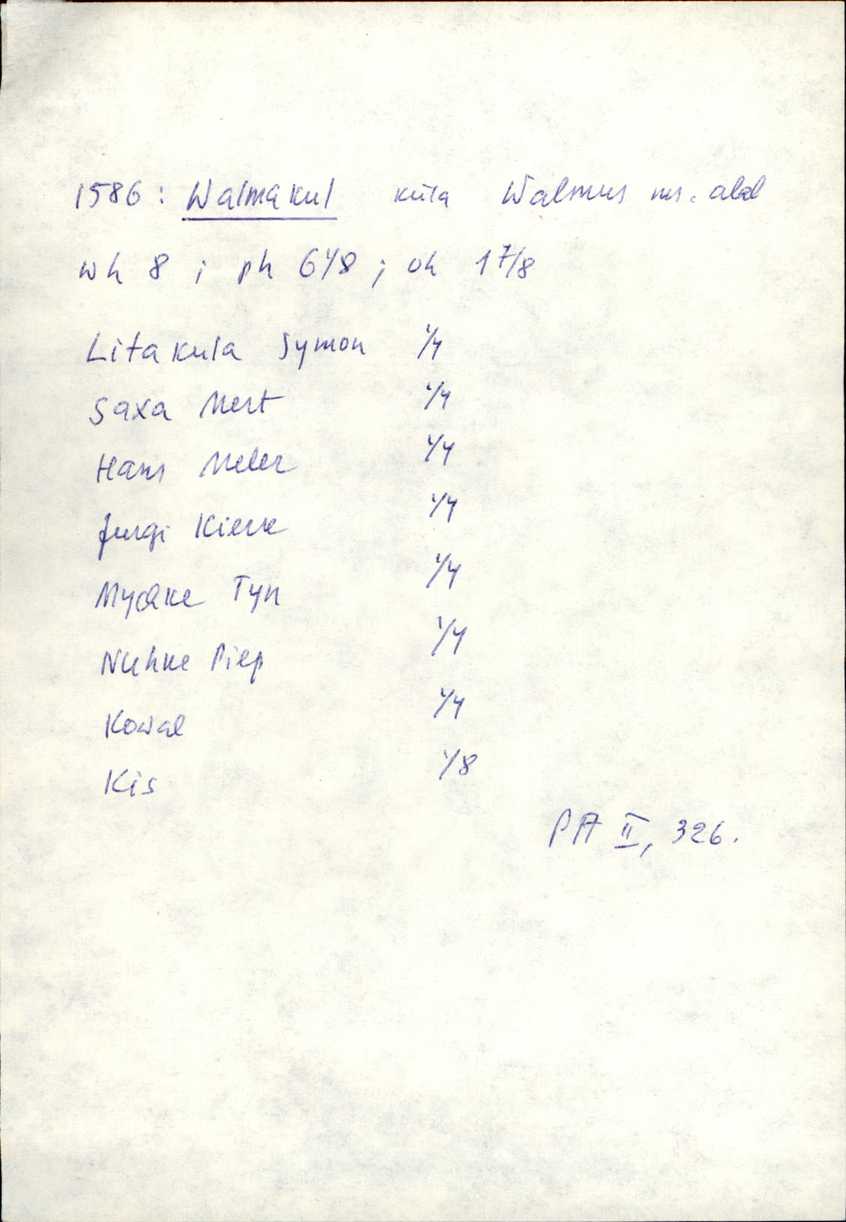 1586: Walmakul küla Walmus ms. alal
wh 8 ; ph 6 1/8 ; oh 1 7/8
Litakula Symon 1/4
Saxa Mert 1/4
Hans Meler 1/4
Jurgi Kierre 1/4
Tyn 1/4
Piep 1/4
Kowal 1/4
Kis 1/8
PA II, 326.